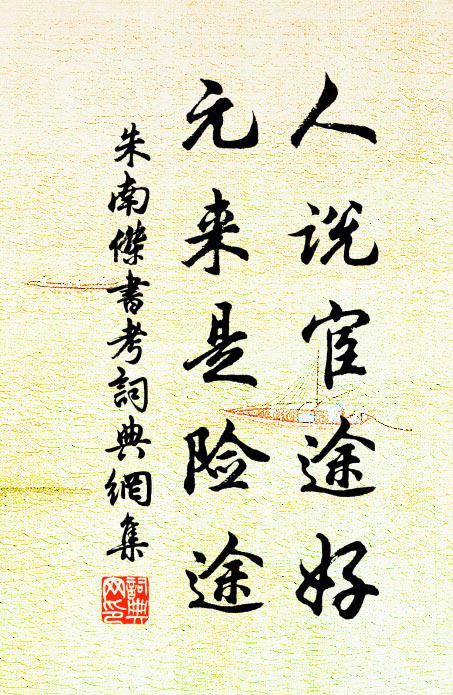 人说宦途好
元来是险途
朱南傑書考詞典網集
詞典
网印